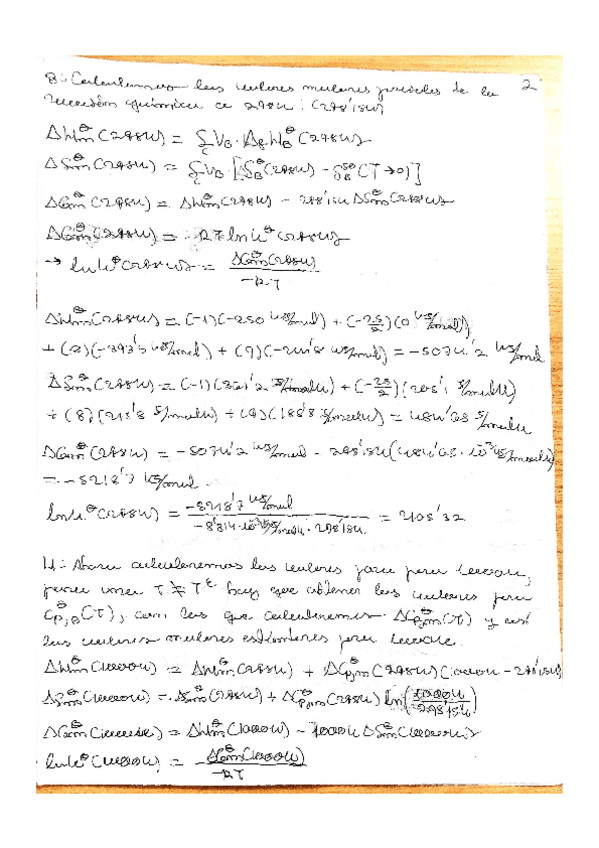 3.- Calculamos los valores molares parciales de la 2
reacción química a 298K: (298'15K)
ΔHm°(298K) = Σ νB · ΔfHB°(298K)
ΔSm°(298K) = Σ νB · [SB°(298K) - SB°(T→0)]
ΔGm°(298K) = ΔHm°(298K) - 298'15K ΔSm°(298K)
ΔGm°(298K) = -RT ln K°(298K)
→ ln K°(298K) = ΔGm°(298K) / -RT
ΔHm°(298K) = (-1)(-250 kJ/mol) + (-25/2)(0 kJ/mol)
+ (8)(-393'5 kJ/mol) + (9)(-241'8 kJ/mol) = -5074'2 kJ/mol
ΔSm°(298K) = (-1)( J/molK) + (-25/2)(205'1 J/molK)
+ (8)(213'8 J/molK) + (9)(188'8 J/molK) = 484'65 J/molK
ΔGm°(298K) = -5074'2 kJ/mol - 298'15K(484'65·10⁻³ kJ/molK)
= -5218'7 kJ/mol.
ln K°(298K) = -5218'7 kJ/mol / -8'314·10⁻³ kJ/molK · 298'15K = 2105'32
4.- Ahora calcularemos los valores para 1000K,
para una T ≠ T° hay que obtener los valores para
Cp,B°(T), con los que calcularemos ΔCp,m°(T) y así
los valores molares estándares para 1000K.
ΔHm°(1000K) = ΔHm°(298K) + ΔCp,m°(298K)(1000K - 298'15K)
ΔSm°(1000K) = ΔSm°(298K) + ΔCp,m°(298K) ln(1000K / 298'15K)
ΔGm°(1000K) = ΔHm°(1000K) - 1000K ΔSm°(1000K)
ln K°(1000K) = ΔGm°(1000K) / -RT